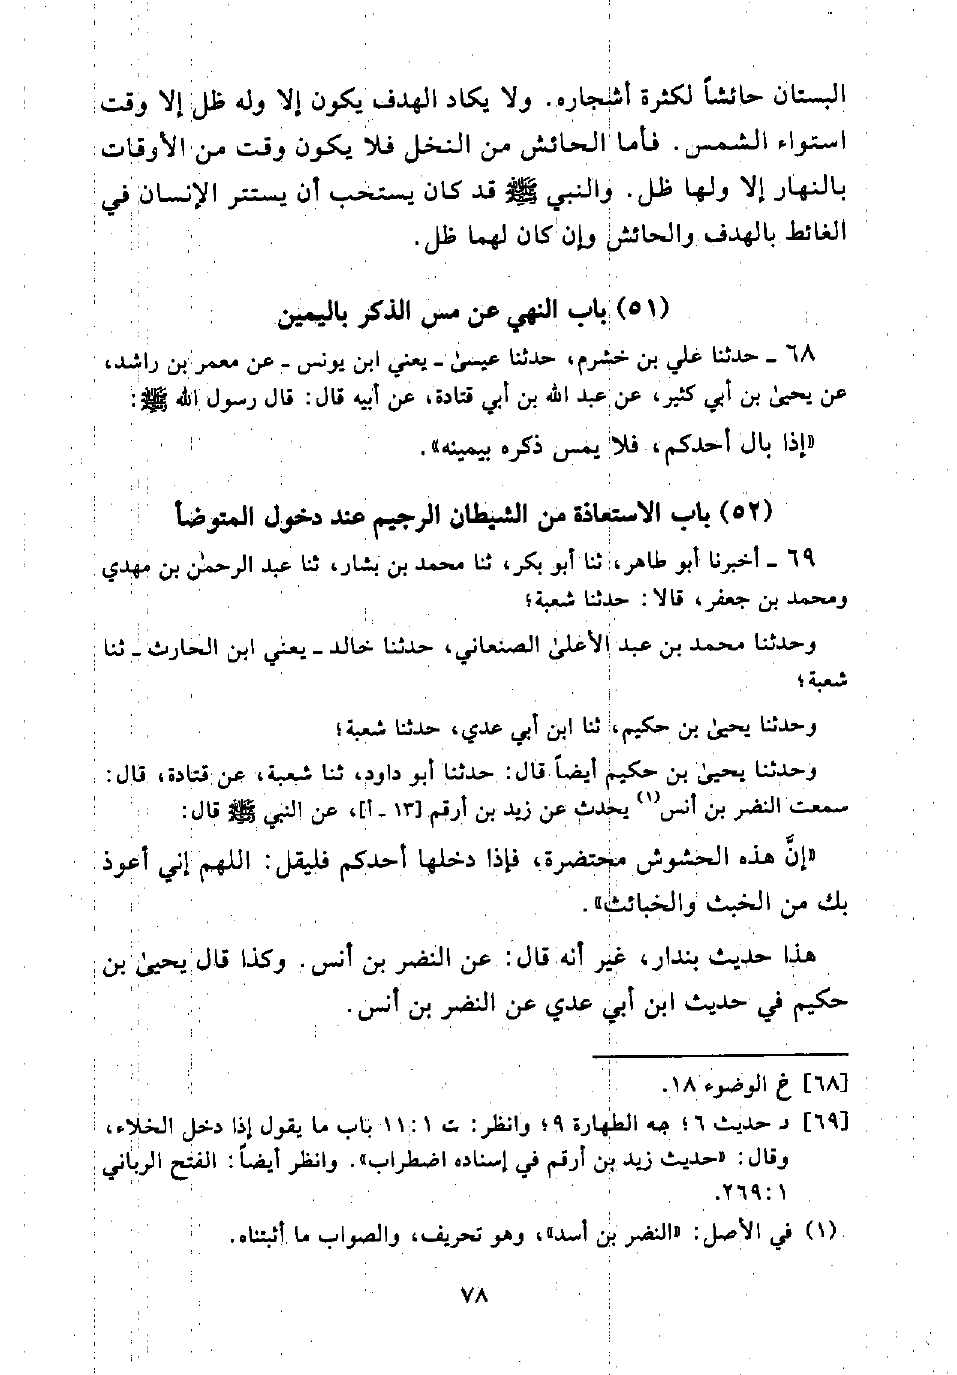 البستان حائشاً لكثرة أشجاره. ولا يكاد الهدف يكون إلا وله ظل إلا وقت
استواء الشمس. فأما الحائش من النخل فلا يكون وقت من الأوقات
بالنهار إلا ولها ظل. والنبي ﷺ قد كان يستحب أن يستتر الإنسان في
الغائط بالهدف والحائش وإن كان لهما ظل.
(٥١) باب النهي عن مس الذكر باليمين
٦٨ ـ حدثنا علي بن خشرم، حدثنا عيسىٰ ـ يعني ابن يونس ـ عن معمر بن راشد،
عن يحيىٰ بن أبي كثير، عن عبد الله بن أبي قتادة، عن أبيه قال: قال رسول الله ﷺ:
«إذا بال أحدكم، فلا يمس ذكره بيمينه».
(٥٢) باب الاستعاذة من الشيطان الرجيم عند دخول المتوضأ
٦٩ ـ أخبرنا أبو طاهر، ثنا أبو بكر، ثنا محمد بن بشار، ثنا عبد الرحمٰن بن مهدي
ومحمد بن جعفر، قالا: حدثنا شعبة؛
وحدثنا محمد بن عبد الأعلىٰ الصنعاني، حدثنا خالد ـ يعني ابن الحارث ـ ثنا
شعبة؛
وحدثنا يحيىٰ بن حكيم، ثنا ابن أبي عدي، حدثنا شعبة؛
وحدثنا يحيىٰ بن حكيم أيضاً قال: حدثنا أبو داود، ثنا شعبة، عن قتادة، قال:
سمعت النضر بن أنس(١) يحدث عن زيد بن أرقم [١٣ ـ أ]، عن النبي ﷺ قال:
«إنَّ هذه الحشوش محتضرة، فإذا دخلها أحدكم فليقل: اللهم إني أعوذ
بك من الخبث والخبائث».
هذا حديث بندار، غير أنه قال: عن النضر بن أنس. وكذا قال يحيىٰ بن
حكيم في حديث ابن أبي عدي عن النضر بن أنس.
[٦٨] خ الوضوء ١٨.
[٦٩] د حديث ٦؛ جه الطهارة ٩؛ وانظر: ت ١: ١١ باب ما يقول إذا دخل الخلاء،
وقال: «حديث زيد بن أرقم في إسناده اضطراب». وانظر أيضاً: الفتح الرباني
١: ٢٦٩.
(١) في الأصل: «النضر بن أسد»، وهو تحريف، والصواب ما أثبتناه.
٧٨